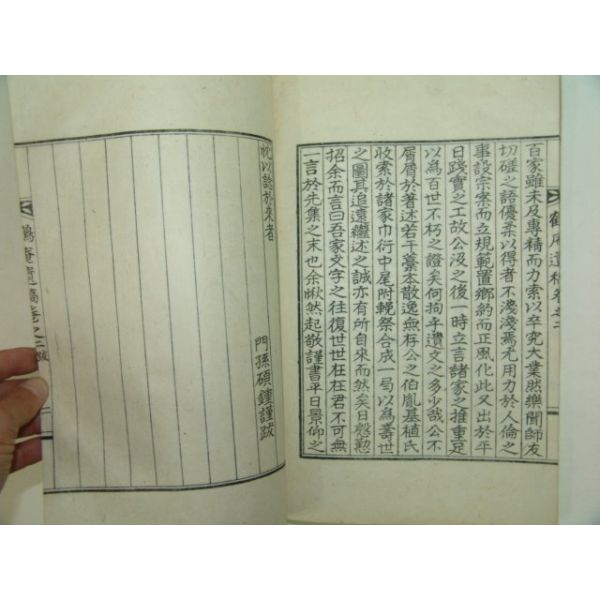 百家雖未及專精而力索以卒究大業然樂聞師友
切磋之語優柔以得者不淺淺焉尤用力於人倫之
事設宗案而立規範置鄉約而正風化此又出於平
日踐實之工故公沒之後一時立言諸家之推重足
以爲百世不朽之證矣何拘乎遺文之多少哉公不
屑屑於著述若干藁本散逸無存公之伯胤基植氏
收索於諸家巾衍中尾附輓祭合成一局以爲壽世
之圖其追遠繼述之誠亦有所自來而然矣日慇懃
招余而言曰吾家文字之往復世世在在君不可無
一言於先集之末也余愀然起敬謹書平日景仰之
忱以諗於來者
門孫碩鍾謹跋
鶴庵遺稿卷之二
鶴庵遺稿卷之二 跋